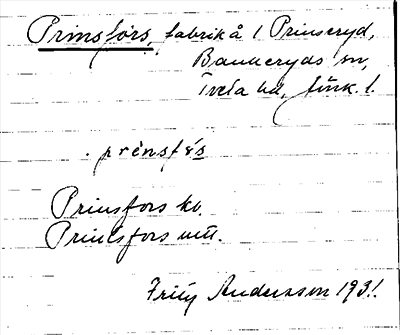 Prinsfors, fabrik å 1 Prinseryd,
Bankeryds sn,
Tveta hd, Jönk. l.
prènsfɷ́s
Prinsfors kv.
Prinsfors mtl.
Frity Andersson 1931.